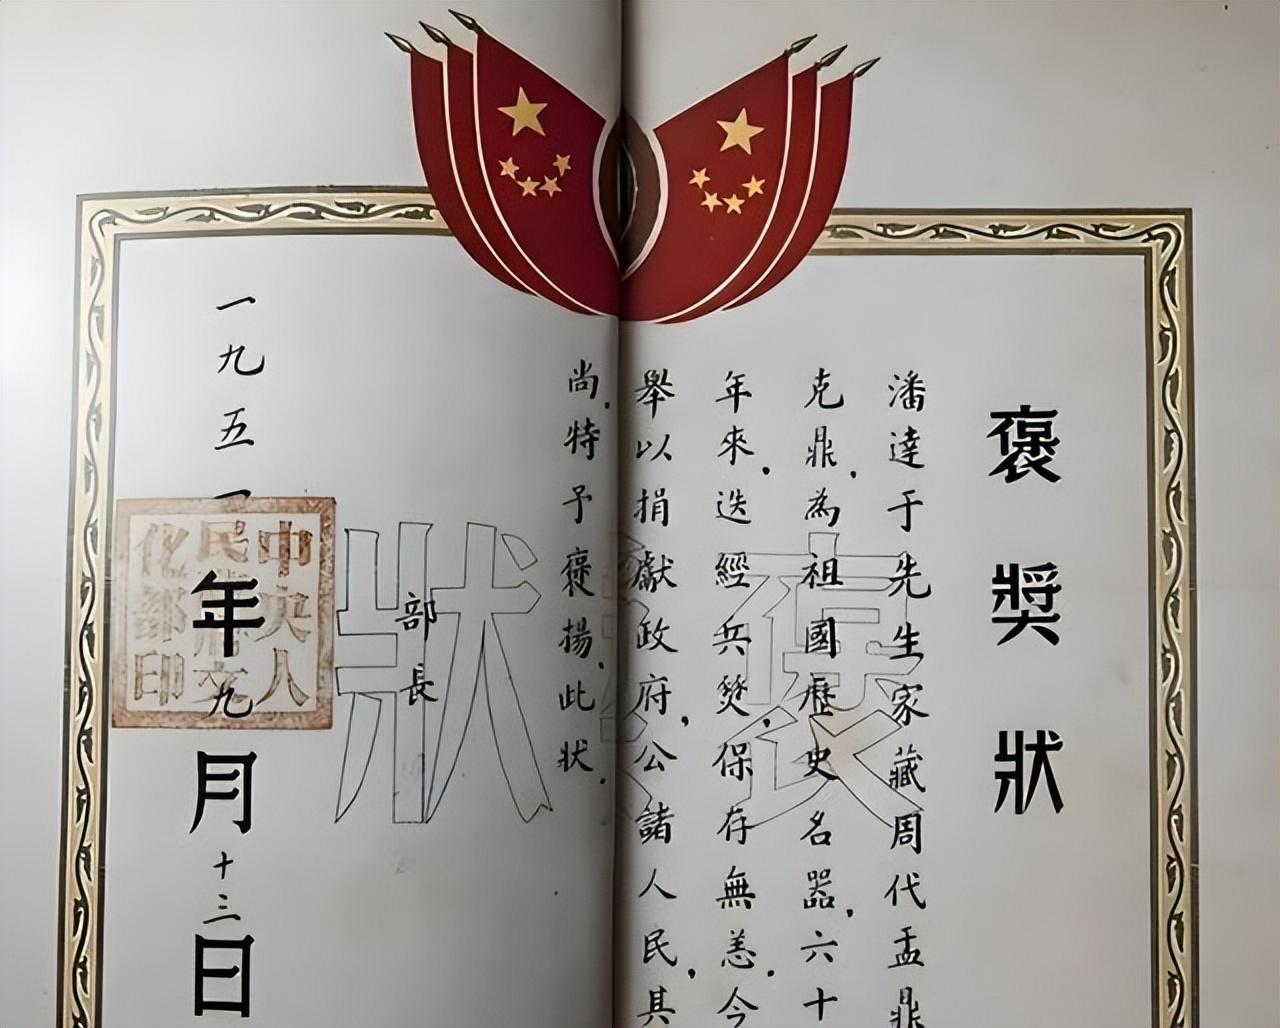 褒奬狀
潘達于先生家藏周代盂鼎
克鼎，為祖國歷史名器，六十
年來，迭經兵燹，保存無恙。今
舉以捐獻政府，公諸人民，其
尚，特予褒揚，此狀。
部長
一九五一年九月十三日
中央人民政府文化部印
褒奬狀